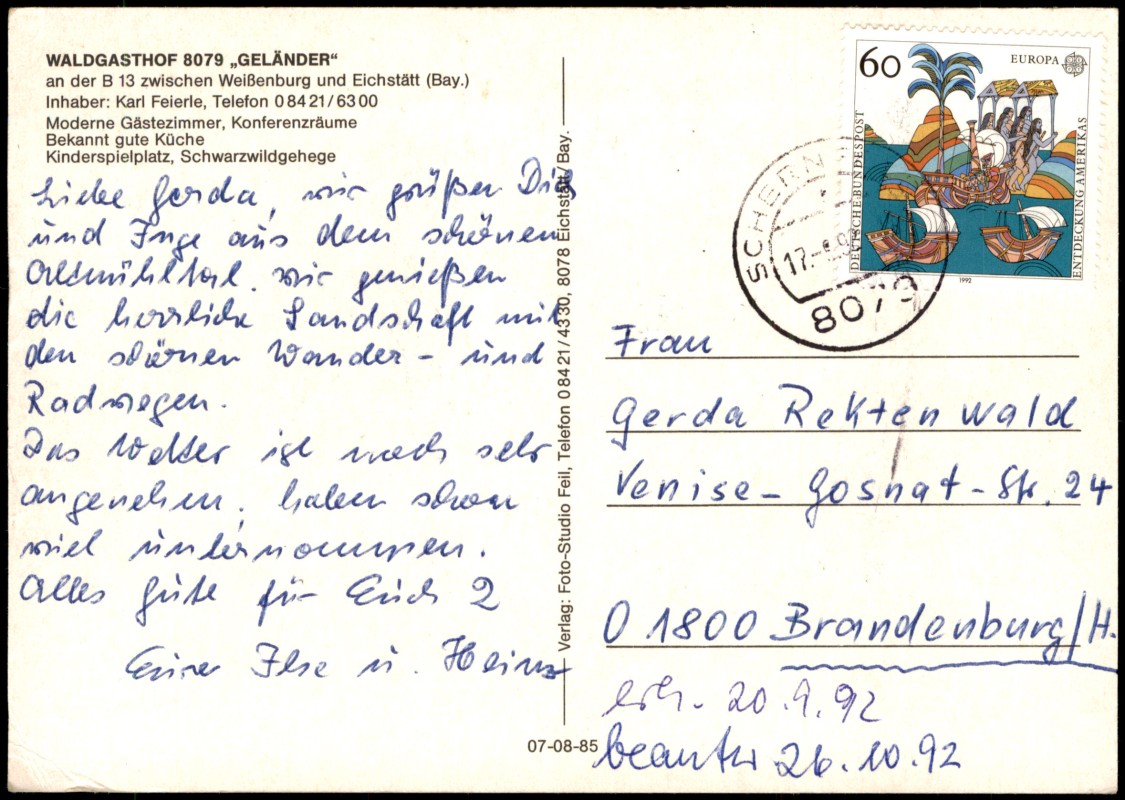 WALDGASTHOF 8079 „GELÄNDER“
an der B 13 zwischen Weißenburg und Eichstätt (Bay.)
Inhaber: Karl Feierle, Telefon 0 84 21 / 63 00
Moderne Gästezimmer, Konferenzräume
Bekannt gute Küche
Kinderspielplatz, Schwarzwildgehege
Liebe Gerda, wir grüßen Dich
und Inge aus dem schönen
Altmühltal. wir genießen
die herrliche Landschaft mit
den schönen Wander- und
Radwegen.
Das Wetter ist noch sehr
angenehm, haben schon
viel unternommen.
Alles Gute für Euch 2
Eure Ilse u. Heinz
Verlag: Foto-Studio Feil, Telefon 0 84 21 / 43 30, 8078 Eichstätt/Bay.
07-08-85
60
EUROPA
DEUTSCHE BUNDESPOST
ENTDECKUNG AMERIKAS
1992
SCHERN
17.-
8079
Frau
Gerda Rektenwald
Venise-Gosnat-Str. 24
O 1800 Brandenburg/H.
erh. 20.9.92
beantw 26.10.92